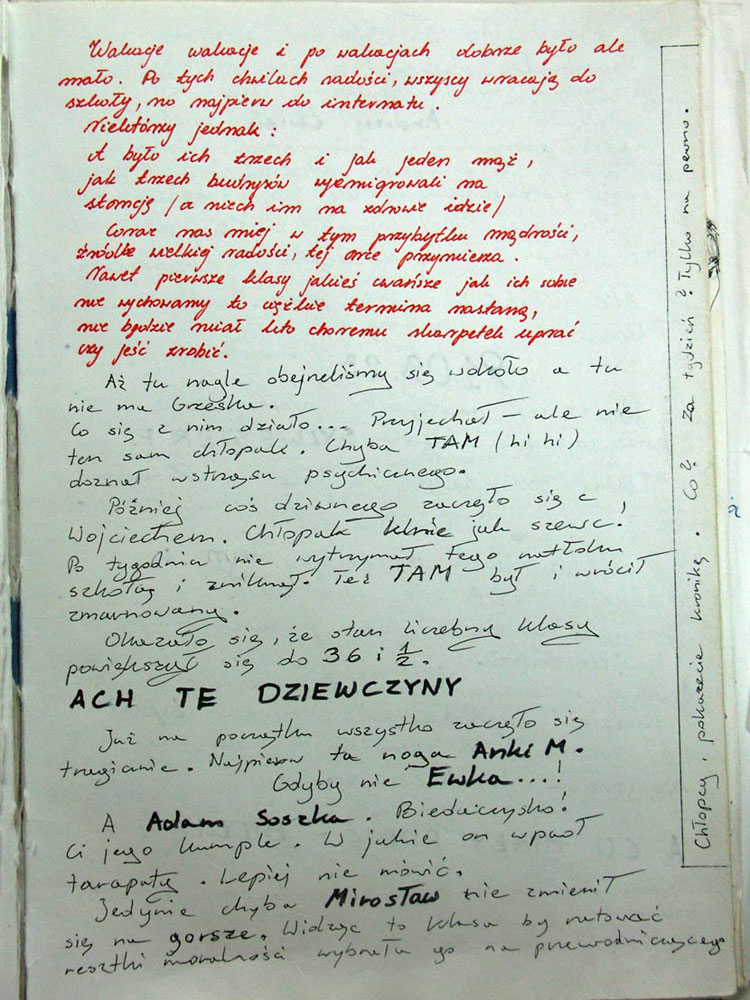 Wakacje wakacje i po wakacjach dobrze było ale
mało. Po tych chwilach radości, wszyscy wracają do
szkoły, no najpierw do internatu.
Niektórzy jednak:
A było ich trzech i jak jeden mąż,
jak trzech budrysów wyemigrowali na
stancję /a niech im na zdrowie idzie/
Coraz nas mniej w tym przybytku mądrości,
źródle wielkiej radości, tej arce przymierza.
Nawet pierwsze klasy jakieś cwańsze jak ich sobie
nie wychowamy to ciężkie termina nastaną,
nie będzie miał kto choremu skarpetek uprać
czy jeść zrobić.
Aż tu nagle obejrzeliśmy się wokoło a tu
nie ma Grześka.
Co się z nim działo... Przyjechał – ale nie
ten sam chłopak. Chyba TAM (hi hi)
doznał wstrząsu psychicznego.
Później coś dziwnego zaczęło się z
Wojciechem. Chłopak klnie jak szewc!
Po tygodniu nie wytrzymał tego natłoku
szkołą i zniknął. Też TAM był i wrócił
zmarnowany.
Okazało się, że stan liczebny klasy
powiększył się do 36 i 1/2.
ACH TE DZIEWCZYNY
Już na początku wszystko zaczęło się
tragicznie. Najpierw ta noga Anki M.
Gdyby nie Ewka...!
A Adam Soszka. Biedaczysko!
Ci jego kumple. W jakie on wpadł
tarapaty. Lepiej nie mówić.
Jedynie chyba Mirosław nie zmienił
się na gorsze. Widząc to klasa by ratować
resztki moralności wybrała go na przewodniczącego
Chłopcy, pokażecie kronikę. Co? Za tydzień? Tylko na pewno.